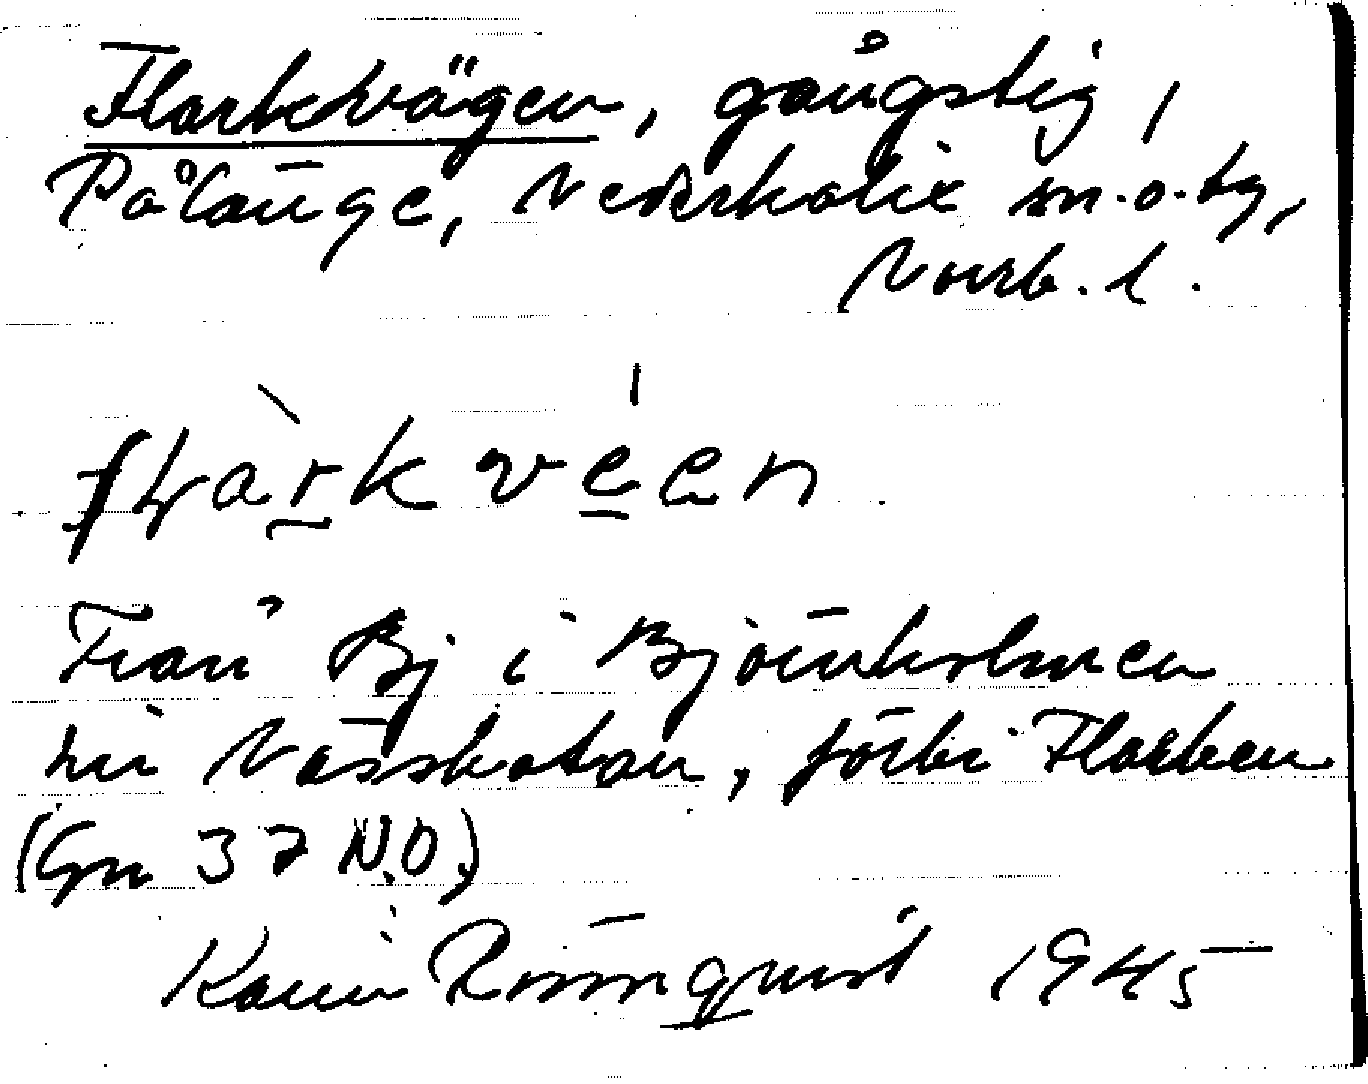 Flarkvägen, gångstig,
Pålänge, Nederkalix sn.o.tg,
Norrb. l.
Från Bj i Björnholmen
till Nässkatan, förbi Flarken
(Gn 37 N.O.)
Karin Rönnquist 1945